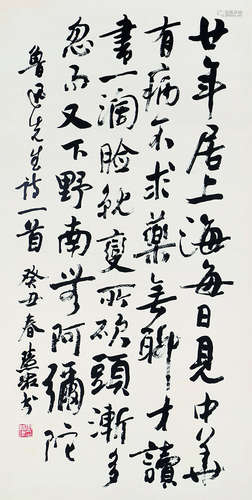 廿年居上海每日見中華
有病不求藥無聊才讀
書一濶臉就變所砍頭漸多
忽而又下野南無阿彌陀
魯迅先生詩一首 癸丑春 慧珺書